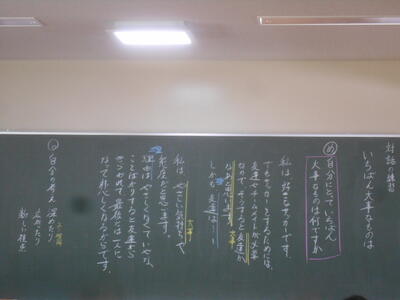 対話の練習
いちばん大事なものは
め 自分にとっていちばん
大事なものは何ですか
私は、好きなサッカーです。
でもサッカーをするためには、
友達やチームメイトが必要
なので、そうすると友達が
なあと思います。
大事
しかも、友達は…
私は、やさしい気持ちや、
大事
態度だと思います。
理由は、やさしくなくていやな
ことばかりすると友達から
きらわれて、最後は一人に
なって悲しくなるからです。
自分の考え 深めたり
広めたり
新しい視点